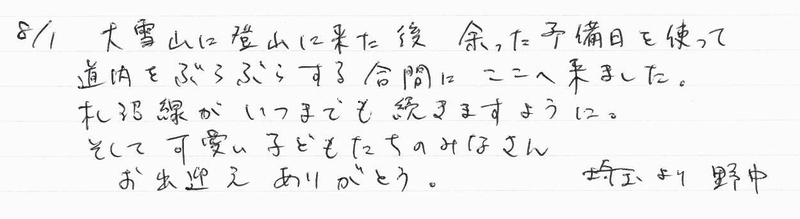 8/1 大雪山に登山に来た後 余った予備日を使って
道内をぶらぶらする合間に ここへ来ました。
札沼線が いつまでも続きますように。
そして 可愛い 子どもたちのみなさん
お出迎え ありがとう。 埼玉より 野中